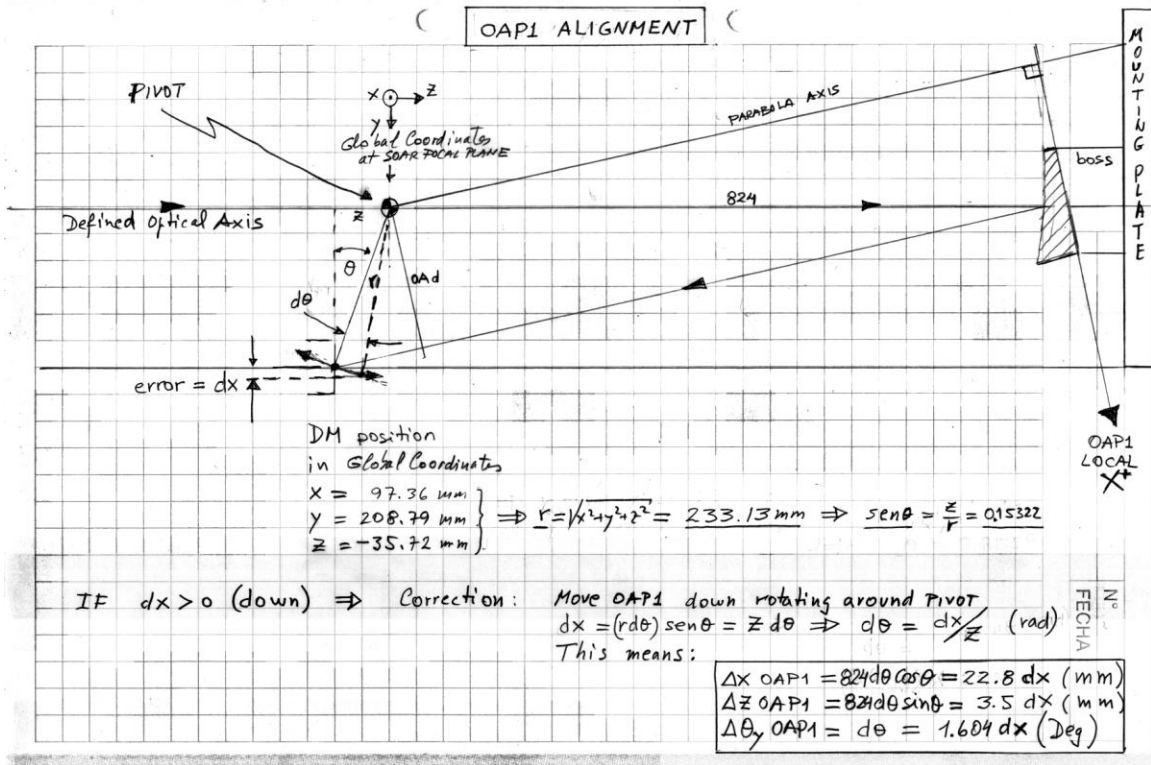 OAP1 ALIGNMENT
MOUNTING PLATE
PIVOT
X
Z
y
Global Coordinates
at SOAR FOCAL PLANE
PARABOLA AXIS
boss
Defined Optical Axis
z
824
θ
OAd
dθ
error = dx
DM position
in Global Coordinates
X = 97.36 mm
Y = 208.79 mm
Z = -35.72 mm
⇒ r = √x²+y²+z² = 233.13 mm ⇒ senθ = z/r = 0,15322
OAP1
LOCAL
X+
IF dx > 0 (down) ⇒ Correction: Move OAP1 down rotating around PIVOT
dx = (rdθ) senθ = Z dθ ⇒ dθ = dx/Z (rad)
This means:
Nº
FECHA
Δx OAP1 = 824dθ cosθ = 22.8 dx (mm)
Δz OAP1 = 824dθ sinθ = 3.5 dx (mm)
Δθy OAP1 = dθ = 1.604 dx (Deg)